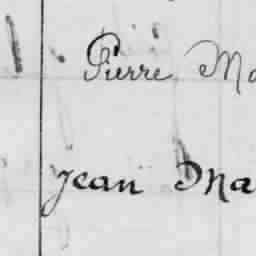 Pierre Ma
Jean Ma